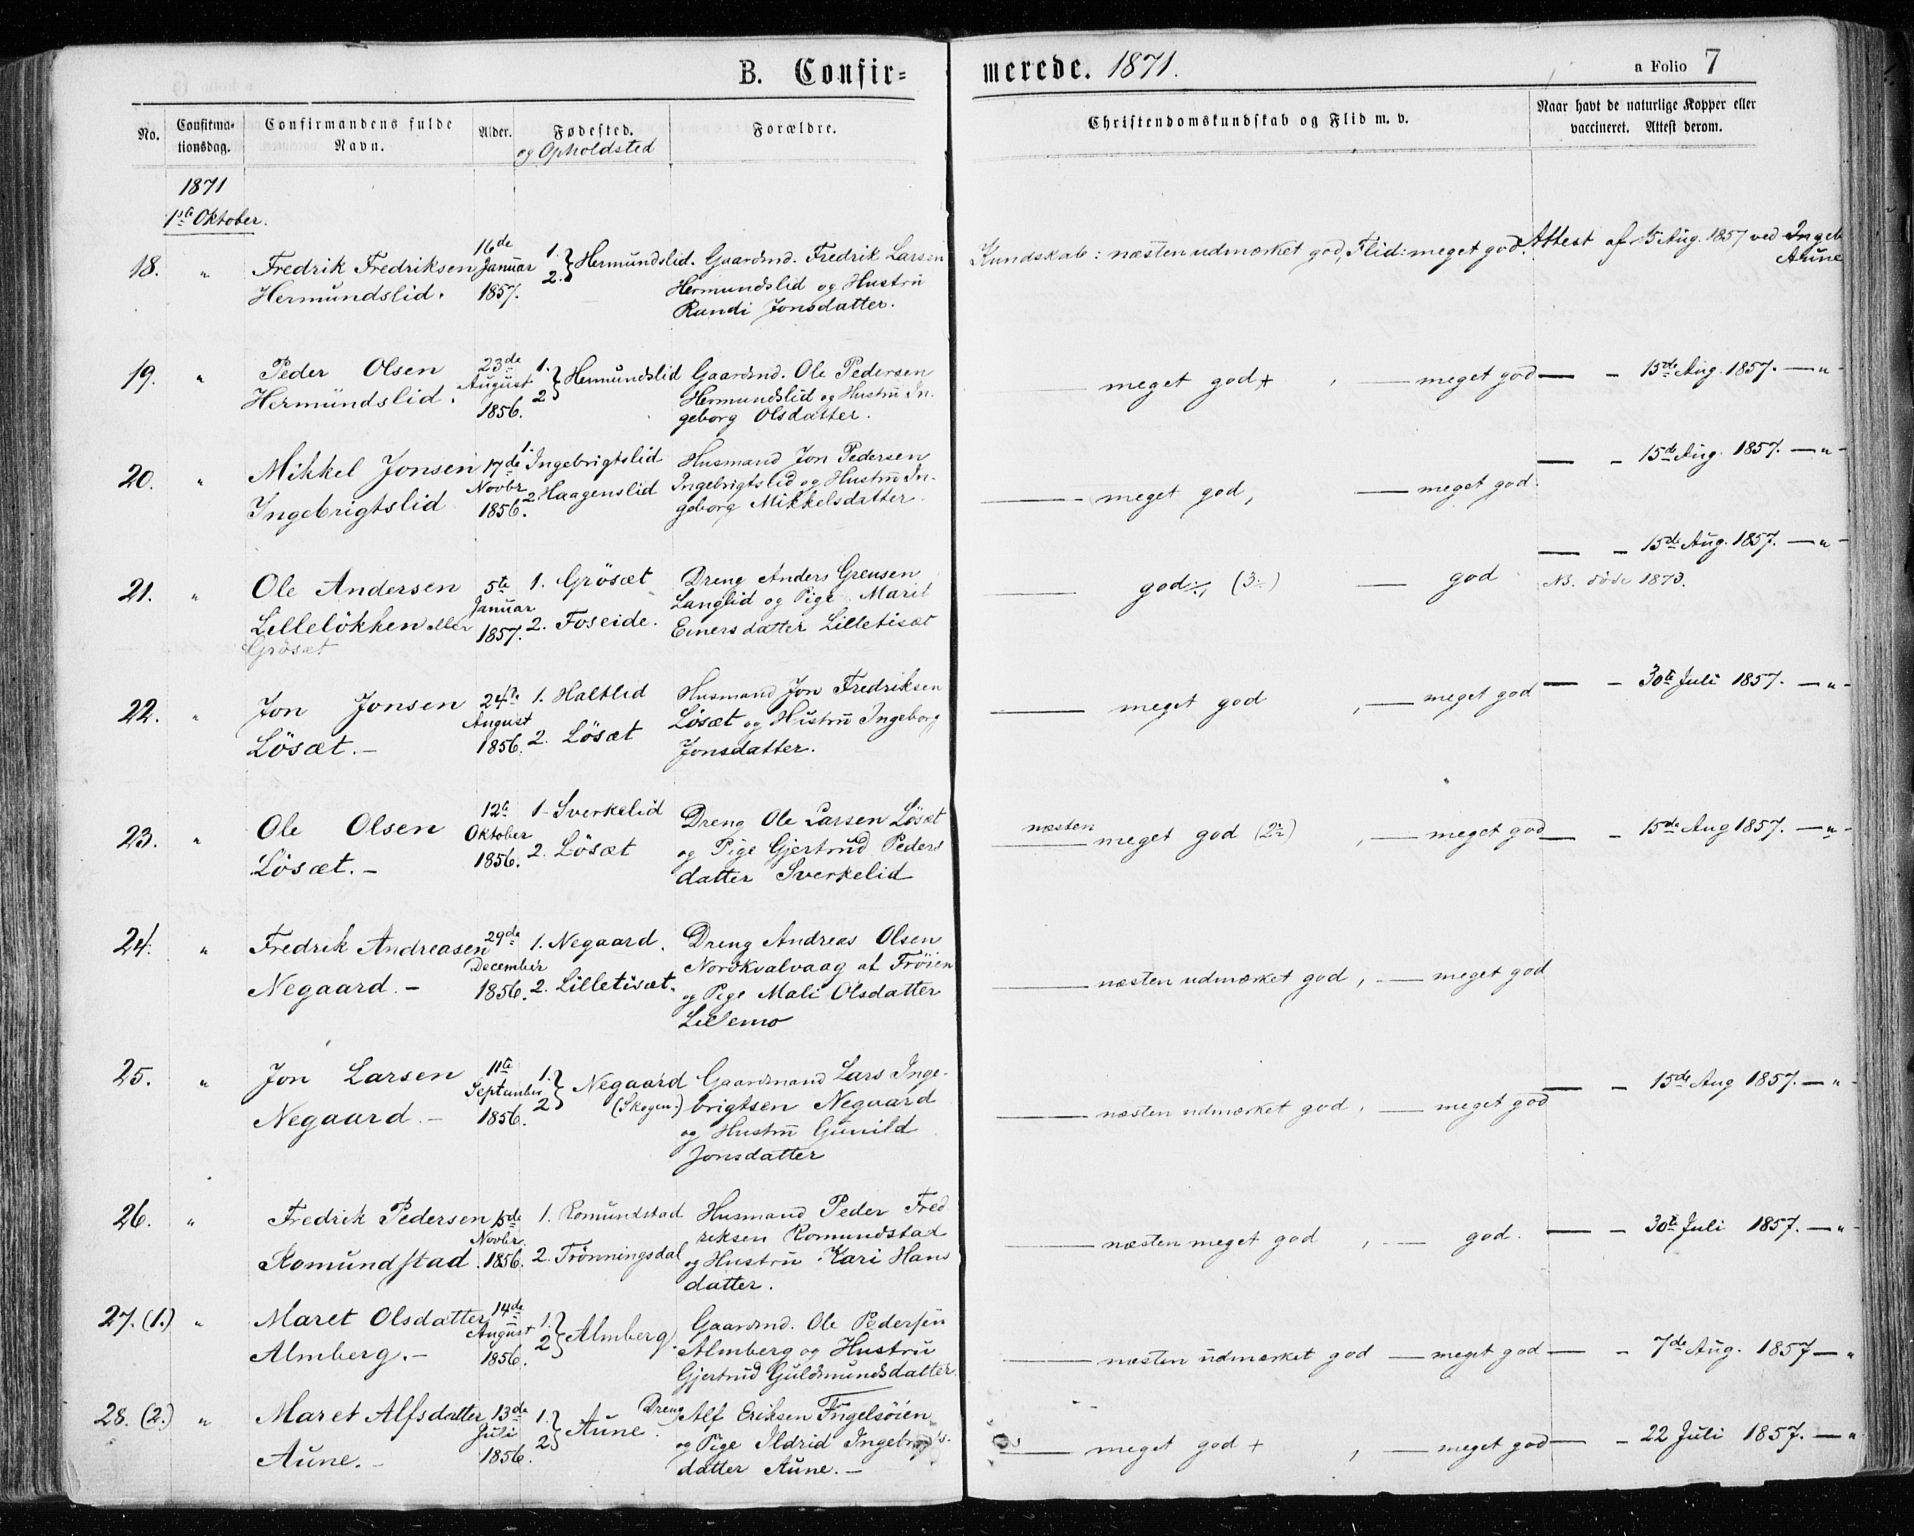 B. Confir=
merede. 1871.
a Folio 7
No.
Confirma-
tionsdag.
Confirmandens fulde
Navn.
Alder.
Fødested.
og Opholdsted
Forældre.
Christendomskundskab og Flid m. v.
Naar havt de naturlige Kopper eller
vaccineret. Attest derom.
1871
1ste Oktober.
18. " Fredrik Fredriksen
Hermundslid.
16de
Januar
1857.
1.
2. } Hermundslid.
Gaardmd. Fredrik Larsen
Hermundslid og Hustru
Randi Jonsdatter.
Kundskab: næsten udmærket god, Flid: meget god.
Attest af 15 Aug. 1857 ved Ingeb
Aune
19. " Peder Olsen
Hermundslid.
23de
August
1856.
1.
2 } Hermundslid
Gaardmd. Ole Pedersen
Hermundslid og Hustru In-
geborg Olsdatter.
— meget god + , — meget god
— - 15de Aug. 1857. — " -
20. " Mikkel Jonsen
Ingebrigtslid
17de
Novbr
1856.
1. Ingebrigtslid
2 Haagenslid
Husmand Jon Pedersen
Ingebrigtslid og Hustru In-
geborg Mikkelsdatter.
— meget god, — meget god.
— - 15de Aug. 1857. — " -
21. " Ole Andersen
Lilleløkken eller
Grøsæt
5te
Januar
1857.
1. Grøsæt
2. Foseide.
Dreng Anders Greusen
Langlid og Pige Marit
Einersdatter Lilletisæt
— god ÷, (3÷) — god
— - 15de Aug. 1857. — " -
NB. døde 1873.
22. " Jon Jonsen
Løsæt. -
24de
August
1856.
1. Haltlid
2. Løsæt
Husmand Jon Fredriksen
Løsæt og Hustru Ingeborg
Jonsdatter.
— meget god , — meget god
— - 30te Juli 1857. — " -
23. " Ole Olsen
Løsæt. -
12te
Oktober
1856.
1. Sverkelid
2. Løsæt
Dreng Ole Larsen Løsæt
og Pige Gjertrud Peders
datter Sverkelid
næsten
— meget god (2÷) , — meget god
— - 15de Aug 1857. — " -
24. " Fredrik Andreasen
Negaard. -
29de
December
1856.
1. Negaard.
2. Lilletisæt.
Dreng Andreas Olsen
Nordkvalvaag at Frøien
og Pige Mali Olsdatter
Lillemo
— næsten udmærket god, — meget god
25. " Jon Larsen
Negaard. -
11te
September
1856.
1.
2 } Negaard
(Skogen.)
Gaardmand Lars Inge-
brigtsen Negaard
og Hustru Gunild
Jonsdatter
— næsten udmærket god, — meget god
— - 15de Aug 1857. — " -
26. " Fredrik Pedersen
Romundstad.
15de
Novbr.
1856.
1. Romundstad
2. Trønningsdal
Husmand Peder Fred
riksen Romundstad
og Hustru Kari Hans
datter.
— næsten meget god , — god.
— - 30te Juli 1857. — " -
27. (1.) " Maret Olsdatter
Almberg. -
14de
August
1856.
1.
2 } Almberg.
Gaardmd. Ole Pedersen
Almberg og Hustru
Gjertrud Guldmundsdatter.
— næsten udmærket god — meget god
— - 7de Aug. 1857 — "
28. (2.) " Maret Alfsdatter
Aune. -
13de
Juli
1856.
1.
2 } Aune.
Dreng Alf Eriksen Engelsøien
og Pige Ildrid Ingebrigts-
datter Aune. -
— meget god + , — meget god
— - 22 Juli 1857. — "